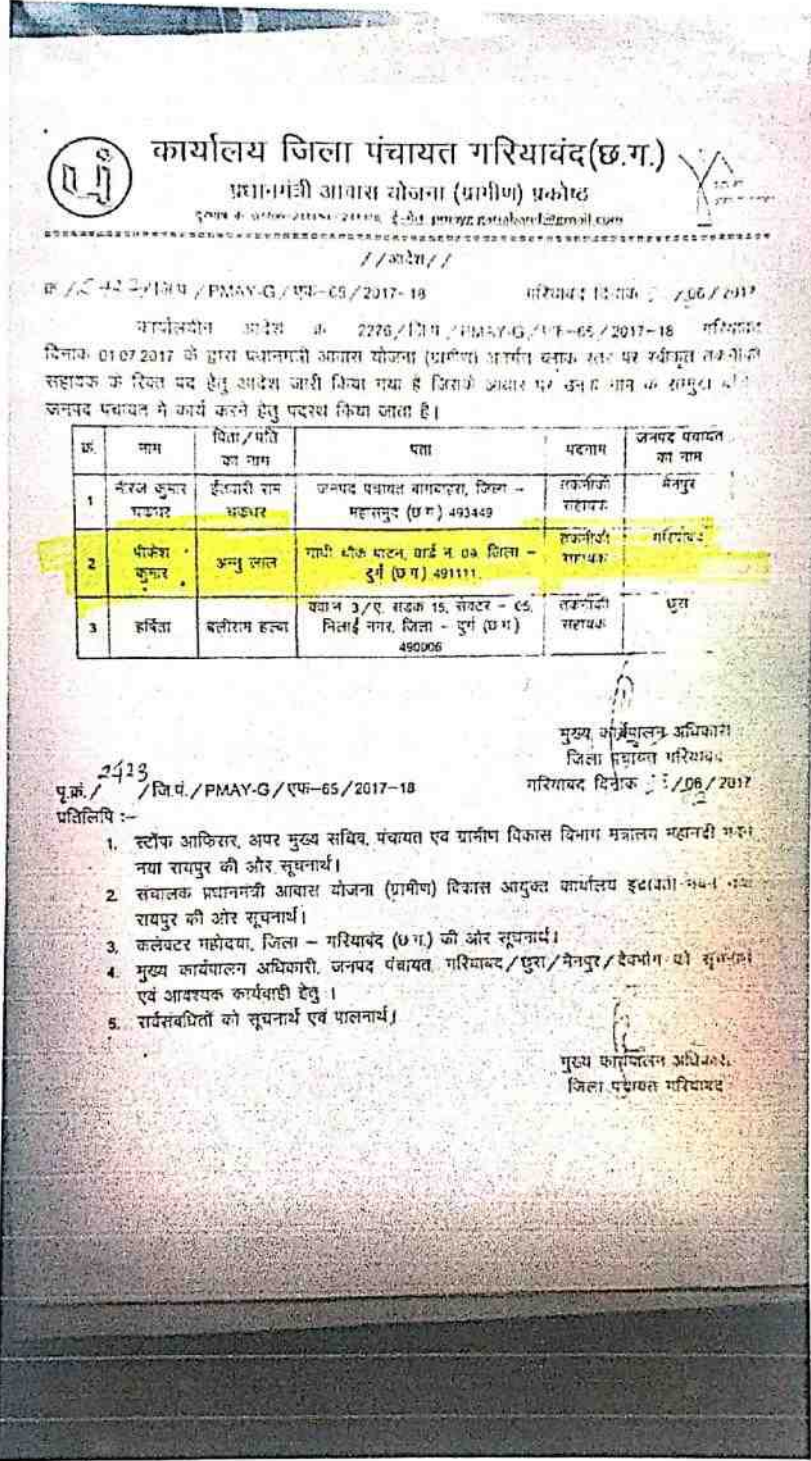 पं
कार्यालय जिला पंचायत गरियाबंद(छ.ग.)
प्रधानमंत्री आवास योजना (ग्रामीण) प्रकोष्ठ
//आदेश//
/ PMAY-G / एफ-65 / 2017-18 गरियाबंद दिनांक /06/2017
कार्यालयीन आदेश क्र 2276/जि.पं./PMAY-G/एफ-65/2017-18 गरियाबंद
दिनांक 01.07.2017 के द्वारा प्रधानमंत्री आवास योजना (ग्रामीण) अंतर्गत ब्लाक स्तर पर स्वीकृत तकनीकी
सहायक के रिक्त पद हेतु आदेश जारी किया गया है जिसके आधार पर उनके नाम के सम्मुख
जनपद पंचायत में कार्य करने हेतु पदस्थ किया जाता है।
क्र. नाम पिता/पति का नाम पता पदनाम जनपद पंचायत का नाम
1 नीरज कुमार चक्रधर ईतवारी राम चक्रधर जनपद पंचायत बागबाहरा, जिला – महासमुंद (छ.ग.) 493449 तकनीकी सहायक मैनपुर
2 पोकेश कुमार अन्नु लाल गांधी चौक पाटन, वार्ड नं. 09 जिला – दुर्ग (छ.ग.) 491111 तकनीकी सहायक गरियाबंद
3 हर्षिता बलीराम हल्बा क्वा.नं 3/ए, सडक 15, सेक्टर – 05, भिलाई नगर, जिला – दुर्ग (छ.ग.) 490006 तकनीकी सहायक छुरा
मुख्य कार्यपालन अधिकारी
जिला पंचायत गरियाबंद
पृ.क्रं./ 2423 /जि.पं./PMAY-G/एफ-65/2017-18 गरियाबंद दिनांक /06/2017
प्रतिलिपि :–
1. स्टॉफ आफिसर, अपर मुख्य सचिव, पंचायत एवं ग्रामीण विकास विभाग मंत्रालय महानदी भवन
नया रायपुर की ओर सूचनार्थ।
2. संचालक प्रधानमंत्री आवास योजना (ग्रामीण) विकास आयुक्त कार्यालय इंद्रावती भवन नया
रायपुर की ओर सूचनार्थ।
3. कलेक्टर महोदया, जिला – गरियाबंद (छ.ग.) की ओर सूचनार्थ।
4. मुख्य कार्यपालन अधिकारी, जनपद पंचायत गरियाबंद/छुरा/मैनपुर/देवभोग को सूचनार्थ
एवं आवश्यक कार्यवाही हेतु ।
5. सर्वसंबंधितों को सूचनार्थ एवं पालनार्थ।
मुख्य कार्यपालन अधिकारी
जिला पंचायत गरियाबंद